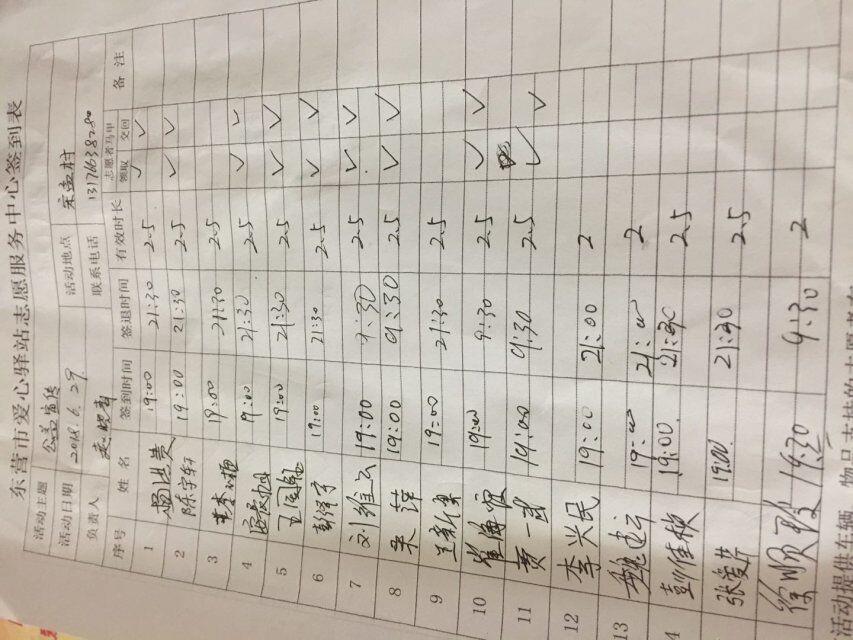 东营市爱心驿站志愿服务中心签到表
活动主题 公益宣传 活动地点 宋孟村
活动日期 2018.6.29 联系电话 13176638280
负责人
序号 姓名 签到时间 签退时间 有效时长 志愿者马甲 领取 交回 备注
1 19:00 21:30 2.5 ✓ ✓
2 陈宇轩 19:00 21:30 2.5 ✓ ✓
3 19:00 21:30 2.5
4 19:00 21:30 2.5 ✓ ✓
5 19:00 21:30 2.5 ✓ ✓
6 彭泽宇 19:00 21:30 2.5 ✓ ✓
7 刘维云 19:00 9:30 2.5 ✓ ✓
8 宋萍 19:00 9:30 2.5 ✓ ✓
9 19:00 21:30 2.5
10 19:00 9:30 2.5 ✓ ✓
11 黄一 19:00 9:30 2.5 ✓ ✓
12 李兴民 19:00 21:00 2
13 19:00 21:00 2
4 彭佳 19:00 21:30 2.5
张爱芹 19:00 21:30 2.5
徐顺 19:30 9:30 2
活动提供车辆、物品支持的志愿者有